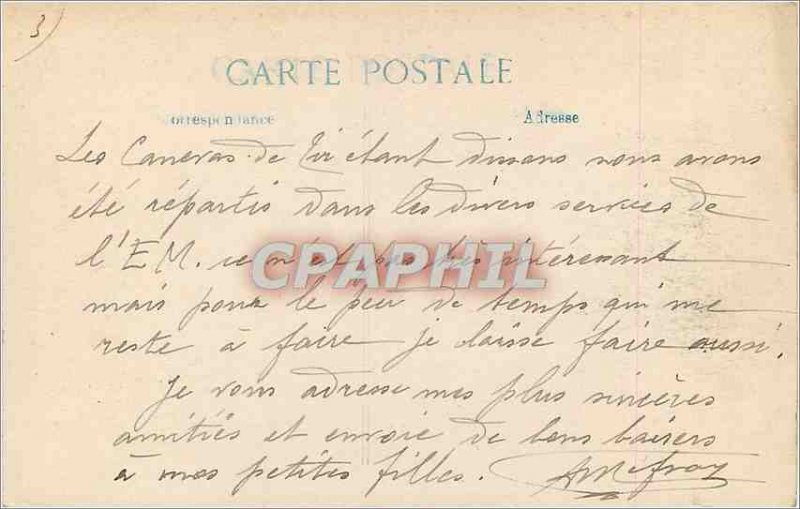 3)
CARTE POSTALE
orrespondance
Adresse
Les Canevas de Tir étant dissous nous avons
été répartis dans les divers services de
l'EM. ce n'est pas très intéressant
CPAPHIL
mais pour le peu de temps qui me
reste à faire je laisse faire aussi.
Je vous adresse mes plus sincères
amitiés et envoie de bons baisers
à mes petites filles.